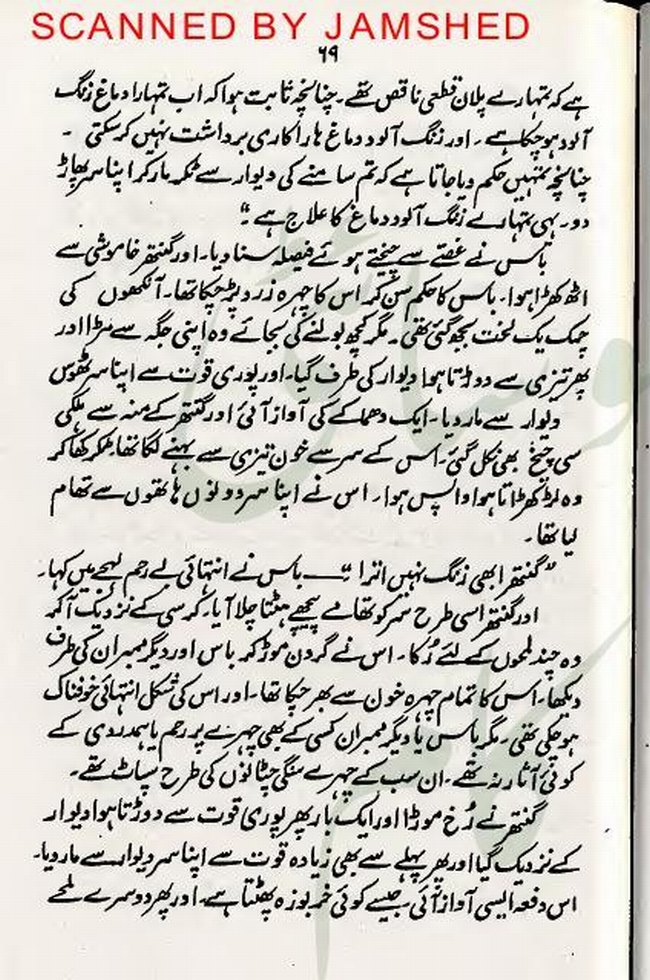 SCANNED BY JAMSHED
۶۹
ہے کہ تمہارے پلان قطعی ناقص تھے۔ چنانچہ ثابت ہوا کہ اب تمہارا دماغ زنگ
آلود ہو چکا ہے۔ اور زنگ آلود دماغ ہارا کاری برداشت نہیں کر سکتی۔
چنانچہ تمہیں حکم دیا جاتا ہے کہ تم سامنے کی دیوار سے ٹکر مار کر اپنا سر پھاڑ
دو۔ یہی تمہارے زنگ آلود دماغ کا علاج ہے۔"
باس نے غصے سے چیختے ہوئے فیصلہ سنا دیا۔ اور گنتھر خاموشی سے
اٹھ کھڑا ہوا۔ باس کا حکم سن کر اس کا چہرہ زرد پڑ چکا تھا۔ آنکھوں کی
چمک یک لخت بجھ گئی تھی۔ مگر کچھ بولنے کی بجائے وہ اپنی جگہ سے مڑا اور
پھر تیزی سے دوڑتا ہوا دیوار کی طرف گیا۔ اور پوری قوت سے اپنا سر ٹھوس
دیوار سے مار دیا۔ ایک دھماکے کی آواز آئی اور گنتھر کے منہ سے ہلکی
سی چیخ بھی نکل گئی۔ اس کے سر سے خون تیزی سے بہنے لگا تھا۔ ٹکر کھا کر
وہ لڑکھڑاتا ہوا واپس ہوا۔ اس نے اپنا سر دونوں ہاتھوں سے تھام
لیا تھا۔
"گنتھر ابھی زنگ نہیں اترا"۔ — باس نے انتہائی بے رحم لہجے میں کہا۔
اور گنتھر اسی طرح سر کو تھامے پیچھے ہٹتا چلا آیا۔ کرسی کے نزدیک آ کر
وہ چند لمحوں کے لئے رُکا۔ اس نے گردن موڑ کر باس اور دیگر ممبران کی طرف
دیکھا۔ اس کا تمام چہرہ خون سے بھر چکا تھا۔ اور اس کی شکل انتہائی خوفناک
ہو چکی تھی۔ مگر باس یا دیگر ممبران کسی کے بھی چہرے پر رحم یا ہمدردی کے
کوئی آثار نہ تھے۔ ان سب کے چہرے سنگی چٹانوں کی طرح سپاٹ تھے۔
گنتھر نے رُخ موڑا اور ایک بار پھر پوری قوت سے دوڑتا ہوا دیوار
کے نزدیک گیا اور پھر پہلے سے بھی زیادہ قوت سے اپنا سر دیوار سے مار دیا۔
اس دفعہ ایسی آواز آئی۔ جیسے کوئی خربوزہ پھٹتا ہے۔ اور پھر دوسرے لمحے